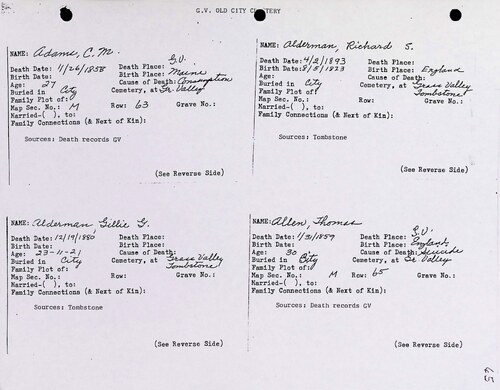 G.V. OLD CITY CEMETERY
NAME: Adams, C. M.
Death Date: 11/26/1858 Death Place: G.V.
Birth Date: Birth Place: Maine
Age: 27 Cause of Death: Consumption
Buried in City Cemetery, at Gr. Valley
Family Plot of:
Map Sec. No.: M Row: 63 Grave No.:
Married-( ), to:
Family Connections (& Next of Kin):
Sources: Death records GV
(See Reverse Side)
NAME: Alderman, Richard S.
Death Date: 4/2/1893 Death Place:
Birth Date: 8/5/1823 Birth Place: England
Age: Cause of Death:
Buried in City Cemetery, at Grass Valley
Family Plot of: Tombstone
Map Sec. No.: Row: Grave No.:
Married-( ), to:
Family Connections (& Next of Kin):
Sources: Tombstone
(See Reverse Side)
NAME: Alderman, Gillie G.
Death Date: 12/19/1880 Death Place:
Birth Date: Birth Place:
Age: 23-11-21 Cause of Death:
Buried in City Cemetery, at Grass Valley
Family Plot of: Tombstone
Map Sec. No.: Row: Grave No.:
Married-( ), to:
Family Connections (& Next of Kin):
Sources: Tombstone
(See Reverse Side)
NAME: Allen, Thomas
Death Date: 1/31/1859 Death Place: G.V.
Birth Date: Birth Place: England
Age: 30 Cause of Death: Suicide
Buried in City Cemetery, at Gr. Valley
Family Plot of:
Map Sec. No.: M Row: 65 Grave No.:
Married-( ), to:
Family Connections (& Next of Kin):
Sources: Death records GV
(See Reverse Side)